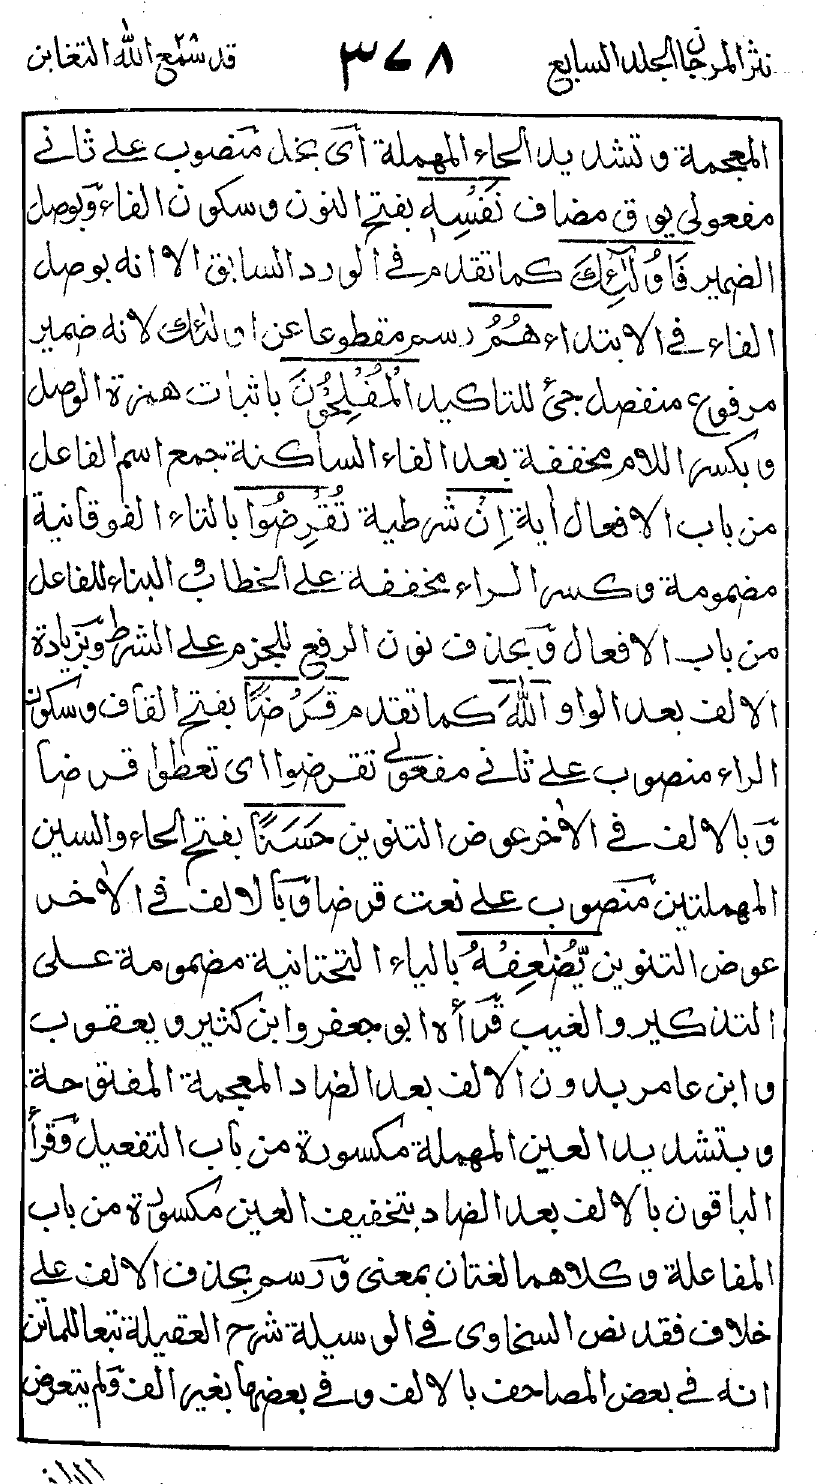 نثر المرجان الجلد السابع ٣٧٨ قد سمع الله ٢٨ التغابن
المعجمة و تشديد الحاء المهملة أى بخل منصوب على ثانى
مفعولى يوق مضاف نَفْسِهٖ بفتح النون و سكون الفاء وَ بوصل
الضمير فَاُولٰٓئِكَ كما تقدم فى الورد السابق الا انه بوصل
الفاء فى الابتداء هُمُ رسم مقطوعا عن اولٰئك لانه ضمير
مرفوع منفصل جئ للتاكيد الْمُفْلِحُوْنَ باثبات همزة الوصل
و بكسر اللام مخففة بعد الفاء الساكنة جمع اسم الفاعل
من باب الافعال أية اِنْ شرطية تُقْرِضُوا بالتاء الفوقانية
مضمومة و كسر الراء مخففة على الخطاب و البناء للفاعل
من باب الافعال وَ بحذف نون الرفع للجزم على الشرط وَ بزيادة
الالف بعد الواو اللهَ كما تقدم قَرْضًا بفتح القاف و سكون
الراء منصوب على ثانى مفعولى تقرضوا اى تعطوا قرضا
وَ بالالف فى الاٰخر عوض التنوين حَسَنًا بفتح الحاء والسين
المهملتين مَنصوب على نعت قرضا وَ بالالف فى الاٰخر
عوض التنوين يُّضٰعِفْهُ بالياء التحتانية مضمومة على
التذكير و الغيب قَرأه ابو جعفر و ابن كثير و يعقوب
و ابن عامر بدون الالف بعد الضاد المعجمة المفتوحة
و بتشديد العين المهملة مكسورة من باب التفعيل وَ قرأ
الباقون بالالف بعد الضاد بتخفيف العين مكسورة من باب
المفاعلة و كلاهما لغتان بمعنى وَ رسم بحذف الالف على
خلاف فقد نص السخاوى فى الوسيلة شرح العقيلة تبعا للماتن
انه فى بعض المصاحف بالالف و فى بعضها بغير الف وَ لم يتعرض